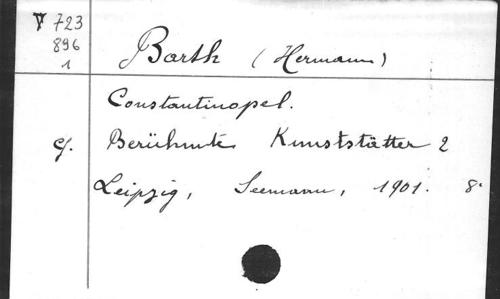 V 723
896
1
Barth (Hermann)
Constantinopel.
c/. Berühmte Kunststätten 2
Leipzig, Seemann, 1901. 8°